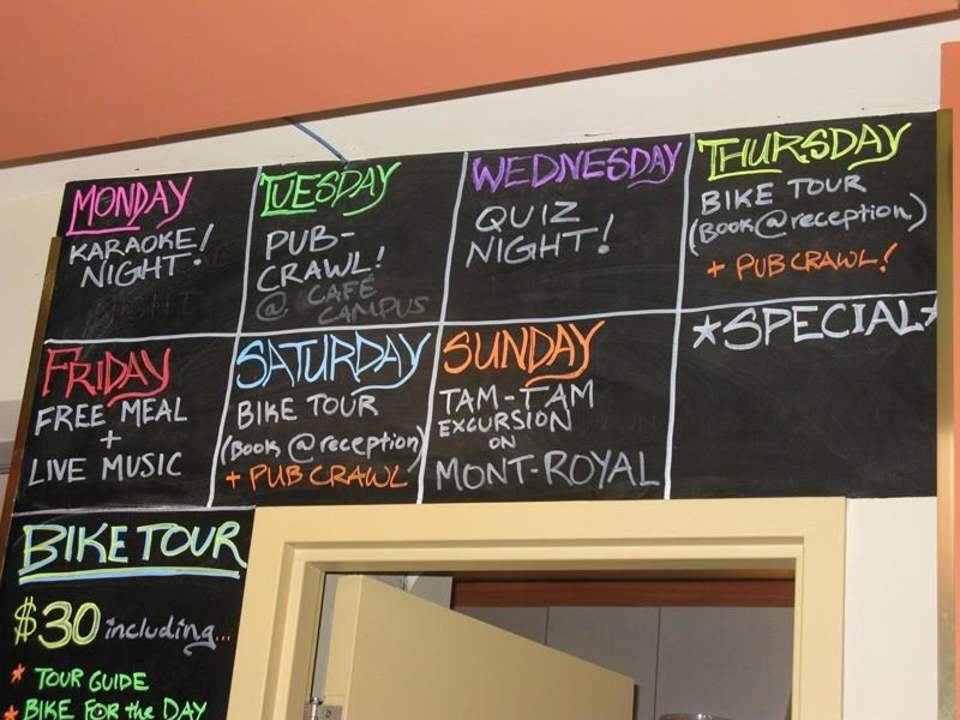 MONDAY
KARAOKE!
NIGHT!
TUESDAY
PUB-
CRAWL!
@ CAFÉ
CAMPUS
WEDNESDAY
QUIZ
NIGHT!
THURSDAY
BIKE TOUR
(Book @ reception)
+ PUB CRAWL!
FRIDAY
FREE MEAL
+
LIVE MUSIC
SATURDAY
BIKE TOUR
(Book @ reception)
+ PUB CRAWL
SUNDAY
TAM-TAM
EXCURSION
ON
MONT-ROYAL
*SPECIAL*
BIKE TOUR
$30 including...
* TOUR GUIDE
* BIKE FOR the DAY